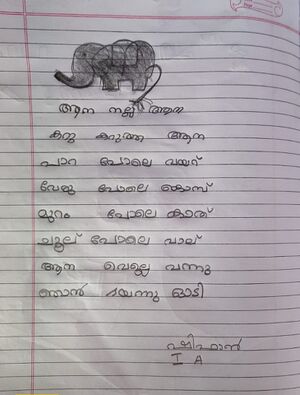 ആന നല്ല ആന
കറു കറുത്ത ആന
പാറ പോലെ വയറ്
വേരു പോലെ കൊമ്പ്
മുറം പോലെ കാത്
ചൂല് പോലെ വാല്
ആന വെല്ലെ വന്നു
ഞാൻ ഭയന്നു ഓടി
I A